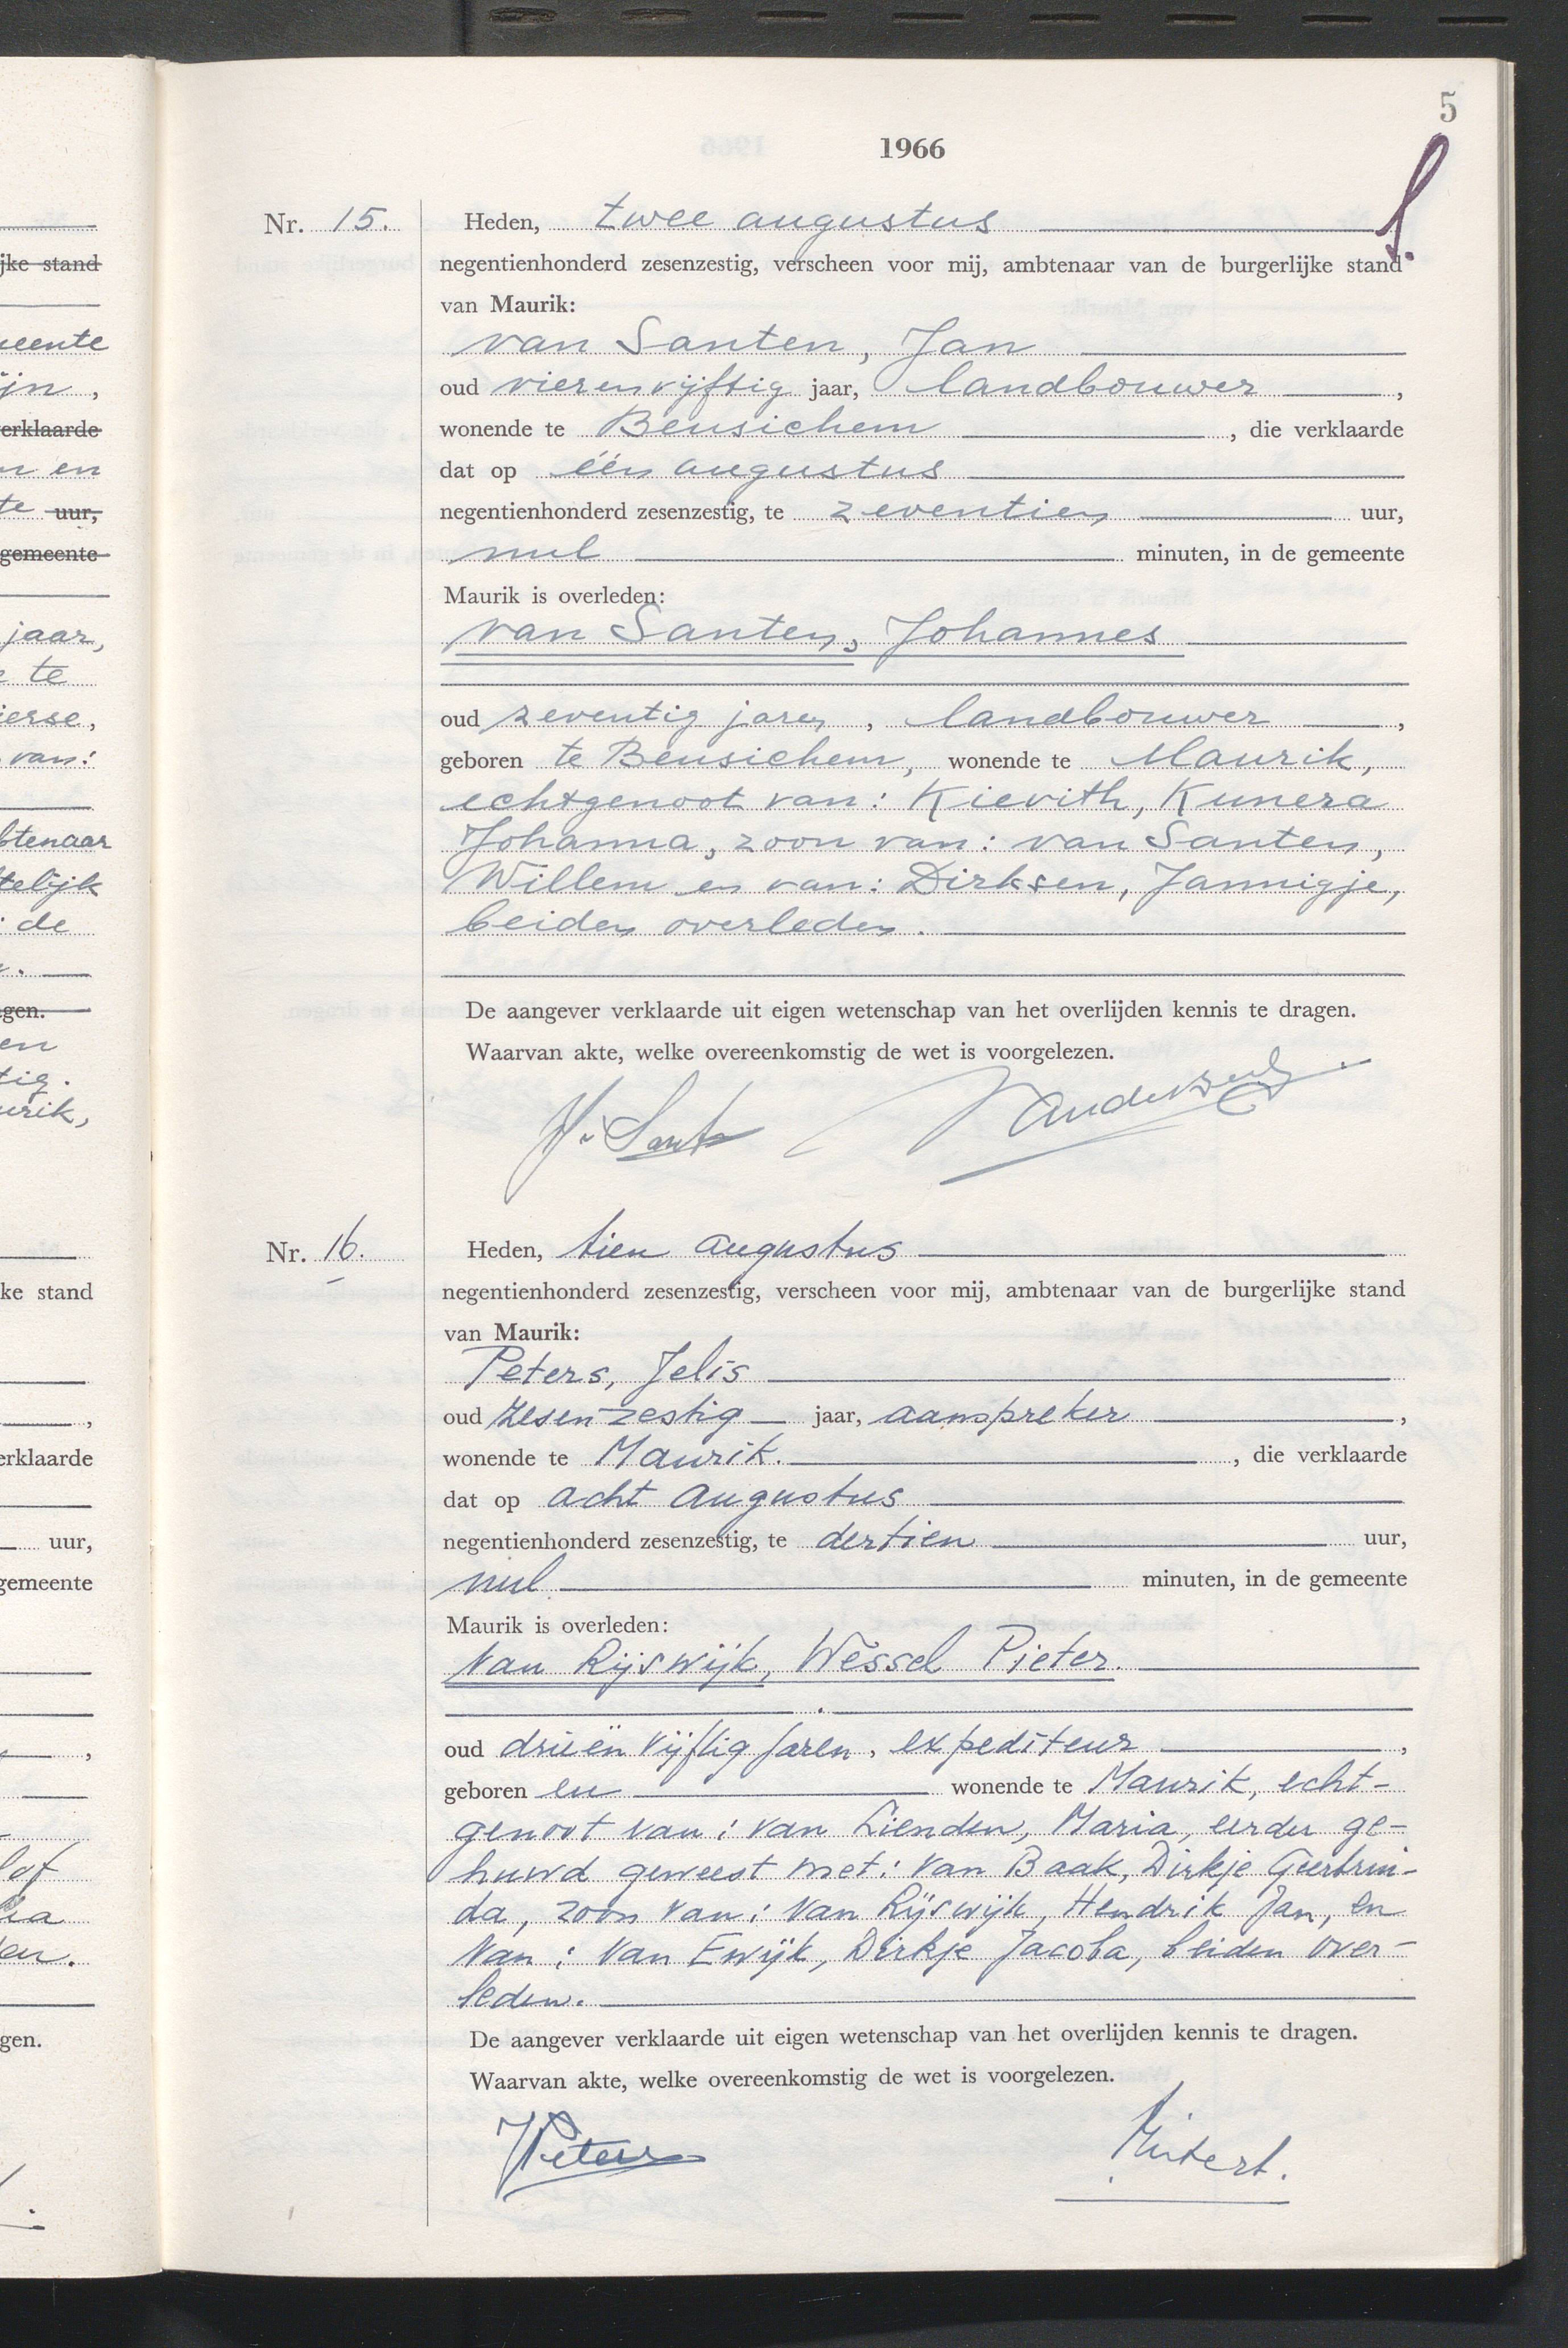 5
1966
Nr. 15. Heden, twee augustus
negentienhonderd zesenzestig, verscheen voor mij, ambtenaar van de burgerlijke stand
van Maurik:
van Santen, Jan
oud vierenvijftig jaar, landbouwer,
wonende te Beusichem, die verklaarde
dat op één augustus
negentienhonderd zesenzestig, te zeventien uur,
nul minuten, in de gemeente
Maurik is overleden:
van Santen, Johannes
oud zeventig jaren, landbouwer,
geboren te Beusichem, wonende te Maurik,
echtgenoot van: Kievith, Kunera
Johanna, zoon van: van Santen,
Willem en van: Dirksen, Jannigje,
beiden overleden.
De aangever verklaarde uit eigen wetenschap van het overlijden kennis te dragen.
Waarvan akte, welke overeenkomstig de wet is voorgelezen.
Nr. 16. Heden, tien augustus
negentienhonderd zesenzestig, verscheen voor mij, ambtenaar van de burgerlijke stand
van Maurik:
Peters, Jelis
oud zesenzestig jaar, aanspreker,
wonende te Maurik. , die verklaarde
dat op acht augustus
negentienhonderd zesenzestig, te dertien uur,
nul minuten, in de gemeente
Maurik is overleden:
van Rijswijk, Wessel Pieter.
oud drieën vijftig jaren, expediteur,
geboren en wonende te Maurik, echt-
genoot van: van Lienden, Maria, eerder ge-
huwd geweest met: van Baak, Dirkje Geertrui-
da, zoon van: van Rijswijk, Hendrik Jan, en
van: van Ewijk, Dirkje Jacoba, beiden over-
leden.
De aangever verklaarde uit eigen wetenschap van het overlijden kennis te dragen.
Waarvan akte, welke overeenkomstig de wet is voorgelezen.
JPeters